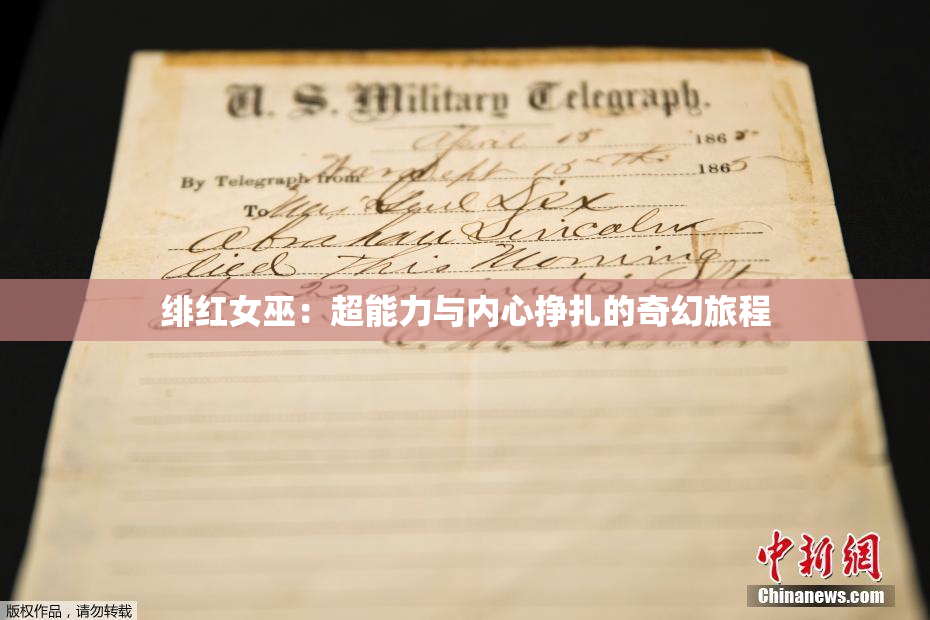 U. S. Military Telegraph.
April 15 1865
By Telegraph from War Dept 15th 1865
To Maj Genl Dix
Abraham Lincoln
died this Morning
at 22 minutes after
绯红女巫：超能力与内心挣扎的奇幻旅程
E. M. Stanton
中新网
Chinanews.com
版权作品，请勿转载